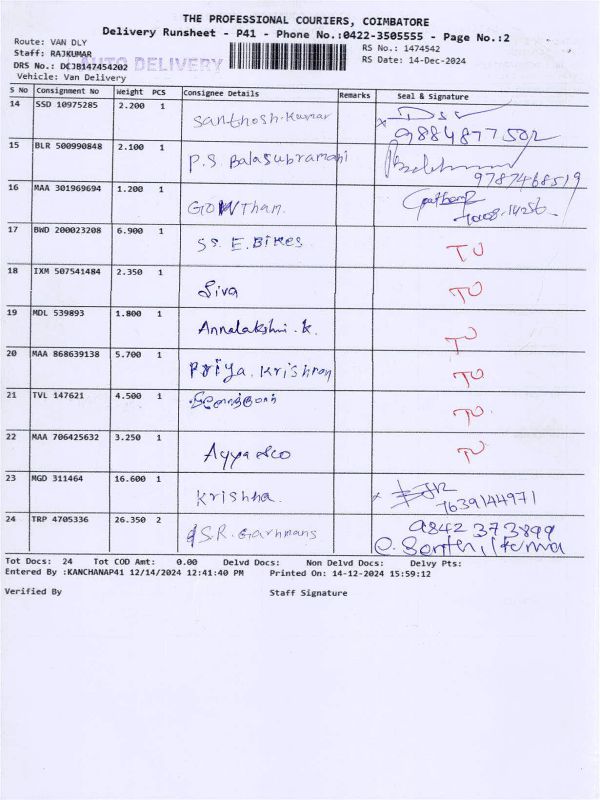 THE PROFESSIONAL COURIERS, COIMBATORE
Delivery Runsheet - P41 - Phone No.:0422-3505555 - Page No.:2
Route: VAN DLY
RS No.: 1474542
Staff: RAJKUMAR AUTO DELIVERY
RS Date: 14-Dec-2024
DRS No.: DCJB147454202
Vehicle: Van Delivery
S No Consignment No Weight PCS Consignee Details Remarks Seal & Signature
14 SSD 10975285 2.200 1 Santhosh.Kumar x
9884877502
15 BLR 500990848 2.100 1 P.S. Balasubramani
9787468519
16 MAA 301969694 1.200 1 GOWTham.
17 BWD 200023208 6.900 1 SS. E. Bikes TU
18 IXM 507541484 2.350 1 Siva TU
19 MDL 539893 1.800 1 Annalakshmi.k. TU
20 MAA 868639138 5.700 1 Priya. Krishnan TU
21 TVL 147621 4.500 1 TU
22 MAA 706425632 3.250 1 Ayya &co TU
23 MGD 311464 16.600 1 Krishna. x
7639144971
24 TRP 4705336 26.350 2 S.R. Garments 9842 373899
Tot Docs: 24 Tot COD Amt: 0.00 Delvd Docs: Non Delvd Docs: Delvy Pts:
Entered By :KANCHANAP41 12/14/2024 12:41:40 PM Printed On: 14-12-2024 15:59:12
Verified By Staff Signature